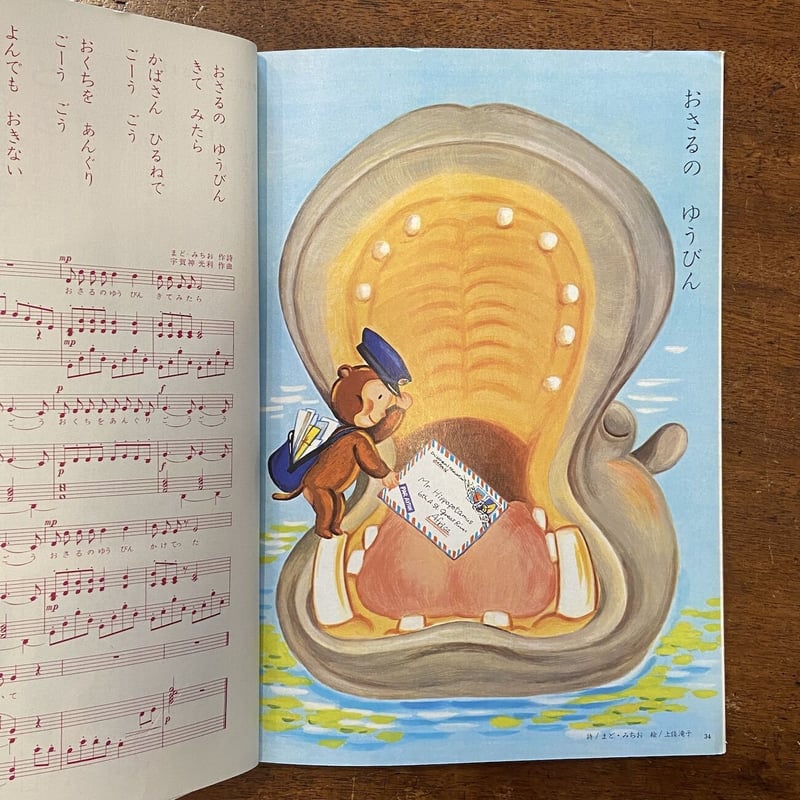 おさるの ゆうびん
きて みたら
かばさん ひるねで
ごーう ごう
おくちを あんぐり
ごーう ごう
よんでも おきない
まど・みちお 作詩
宇賀神光利 作曲
mp
おさるのゆう びん きてみたら
mp
p f
ごう おくちをあんぐり ごう
p f
おさるのゆう びん かけてった
mp p
いて
おさるの ゆうびん
Mr. Hippopotamus
Africa
詩/まど・みちお 絵/上條滝子
34